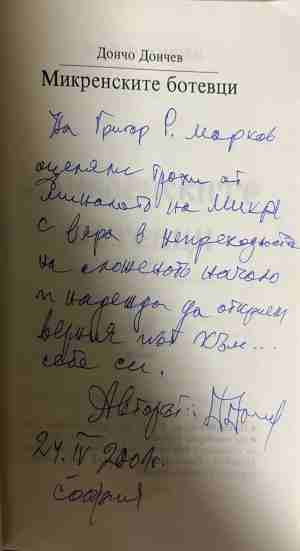 Дончо Дончев
Микренските ботевци
На Григор Р. Марков
оцелели трохи от
миналото на Микре
с вяра в непреходността
на сложеното начало
и надежда да открием
верния път към...
себе си.
Авторът:
24. IV 2001 г.
София